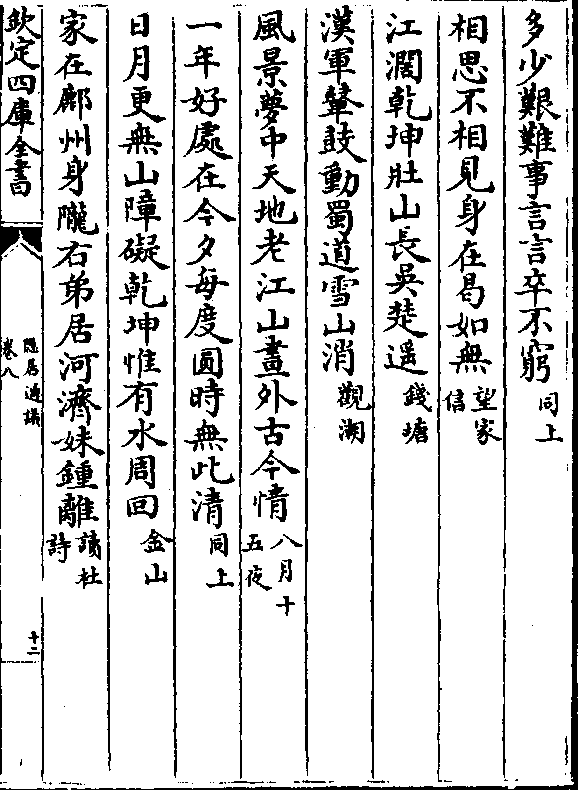 多少艱難事言言卒不窮同上
相思不相見身在曷如無望家信
江濶乾坤壯山長吳楚遥錢塘
漢軍鼙鼓動蜀道雪山消觀潮
風景夢中天地老江山畫外古今情八月十五夜
一年好處在今夕每度圓時無此清同上
日月更無山障礙乾坤惟有水周回金山
家在鄜州身隴右弟居河濟妹鍾離讀杜詩
欽定四庫全書
隱居通議
卷八
十二